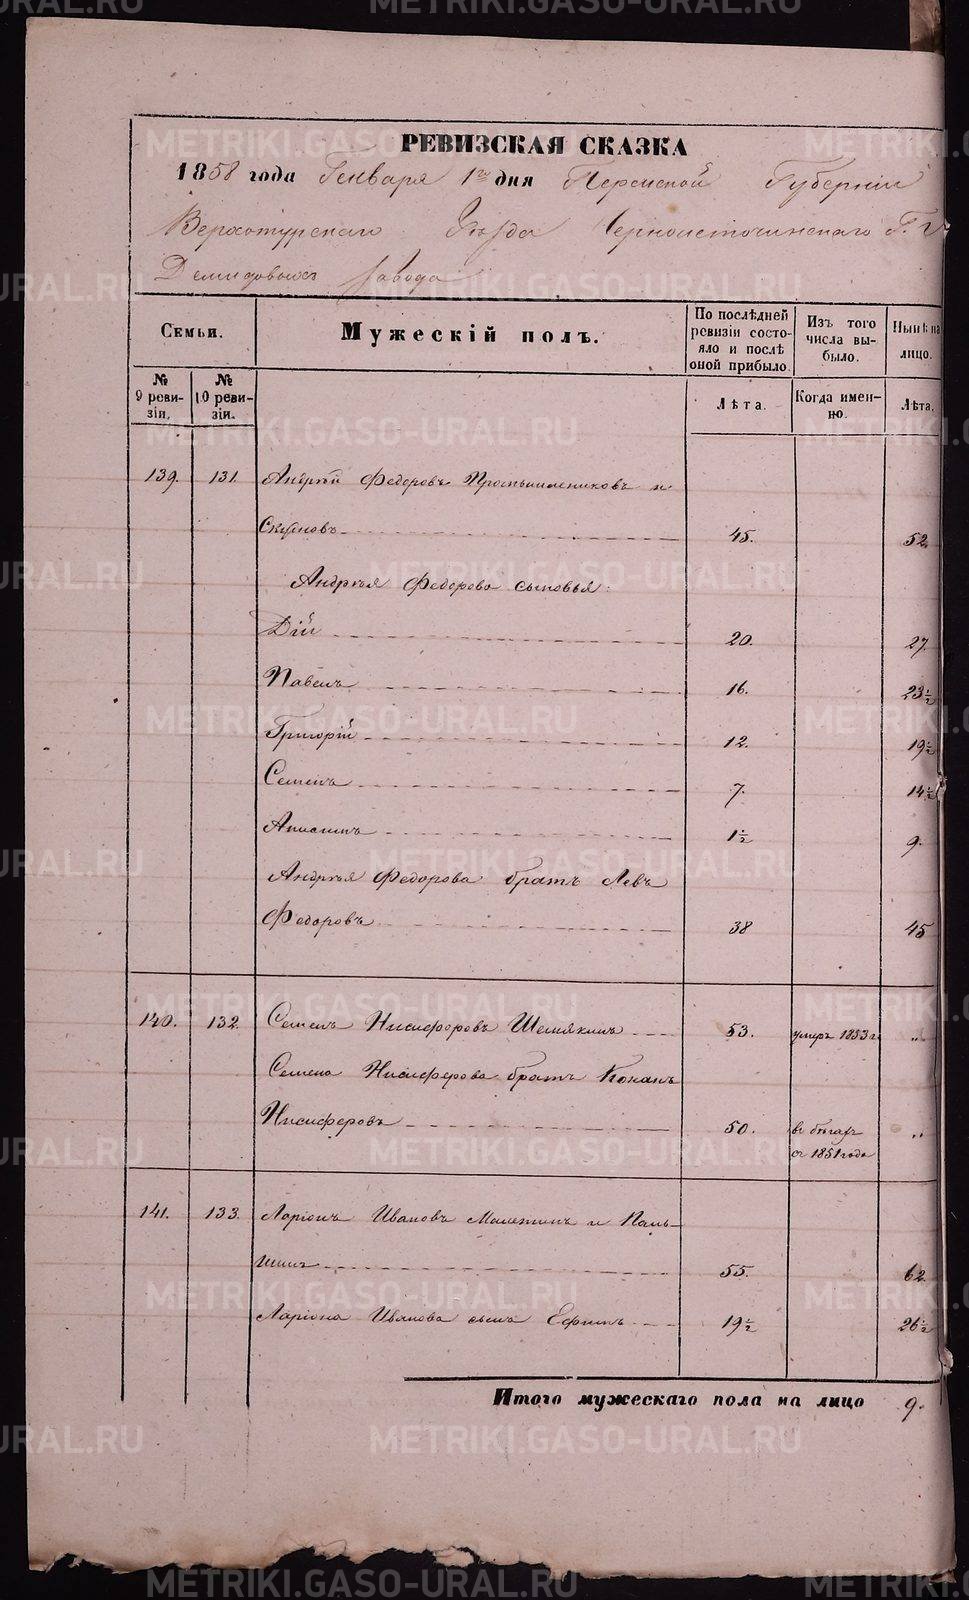 РЕВИЗСКАЯ СКАЗКА
1858 года Генваря 1го дня Пермской Губерніи
Верхотурскаго Уѣзда Черноисточинскаго Г. г
Демидовыхъ завода
Семьи. Мужескій полъ. По послѣдней ревизіи состояло и послѣ оной прибыло. Изъ того числа выбыло. Нынѣ на лицо.
№ 9 ревизіи. № 10 ревизіи. Лѣта. Когда именно. Лѣта.
139. 131. Андрей Федоровъ Промышлениковъ и
Скуновъ 45. 52.
Андрея Федорова сыновья:
Дій 20. 27.
Павелъ 16. 23½
Григорій 12. 19½
Семенъ 7. 14½
Анисимъ 1½ 9.
Андрея Федорова братъ Левъ
Федоровъ 38 45
140. 132. Семенъ Никифоровъ Шемякинъ 53. умеръ 1853 г. „
Семена Никифорова братъ Кононъ
Никифоровъ 50. въ бѣгахъ „
съ 1851 года
141. 133. Ларіонъ Ивановъ Малетинъ и Пань-
шинъ 55. 62.
Ларіона Иванова сынъ Ефимъ 19½ 26½
Итого мужескаго пола на лицо 9.
METRIKI.GASO-URAL.RU